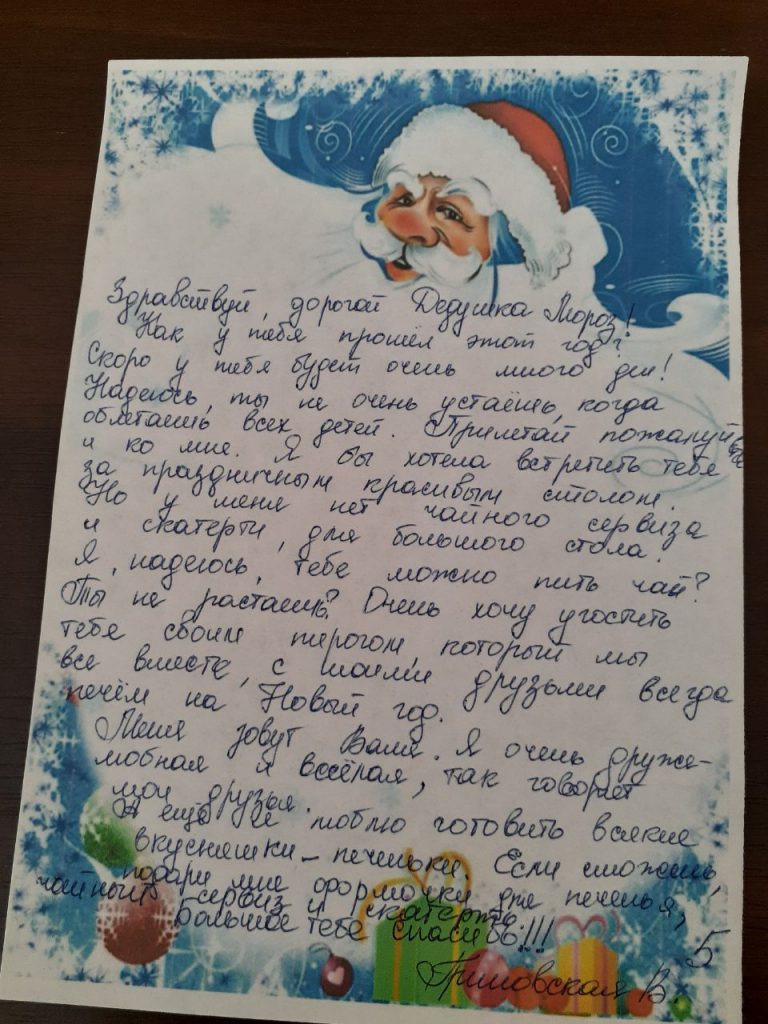 Здравствуй, дорогой Дедушка Мороз!
Как у тебя прошёл этот год?
Скоро у тебя будет очень много дел!
Надеюсь, ты не очень устаёшь, когда
облетаешь всех детей. Прилетай пожалуйста
и ко мне. Я бы хотела встретить тебя
за праздничным красивым столом.
Но у меня нет чайного сервиза
и скатерти, для большого стола.
Я, надеюсь, тебе можно пить чай?
Ты не растаешь? Очень хочу угостить
тебя своим пирогом, который мы
все вместе, с моими друзьями всегда
печём на Новый год.
Меня зовут Валя. Я очень друже-
любная и весёлая, так говорят
мои друзья.
А ещё я люблю готовить всякие
вкусняшки – печеньки. Если сможешь,
подари мне формочки для печенья,
чайный сервиз и скатерть.
Большое тебе спасибо!!!
В. 5